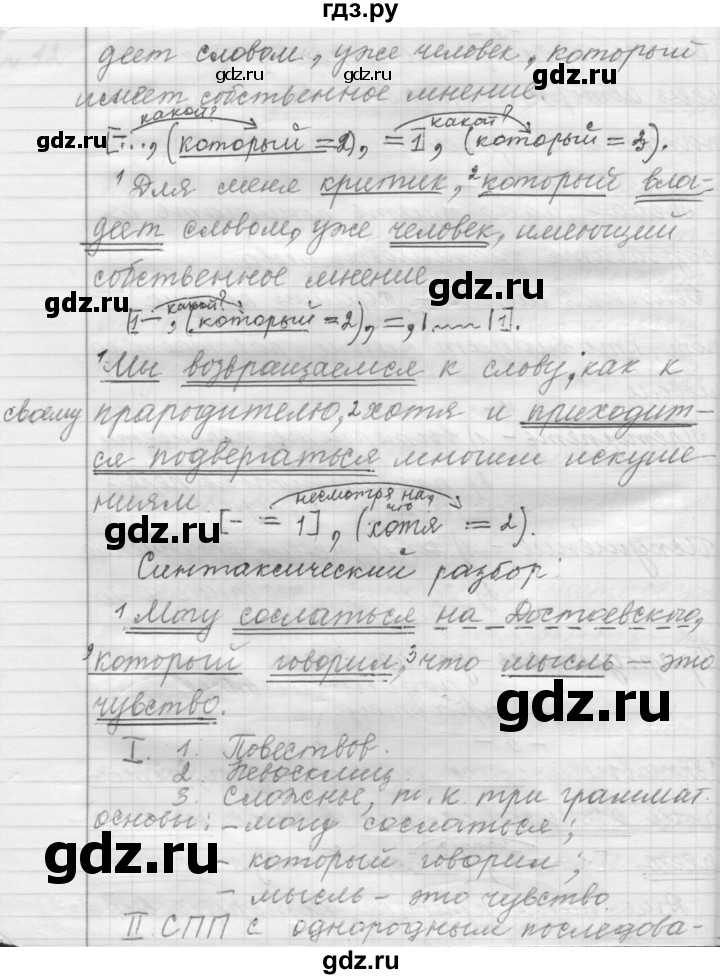 гдз.ру
деет словом, уже человек, который
gdz.ru gdz.ru
имеет собственное мнение.
какой? какой?
[–..., (который = 2), =1], (который = 3).
gdz.ru gdz.ru
¹Для меня критик, ²который вла-
деет словом, уже человек, имеющий
собственное мнение.
gdz.ru gdz.ru
какой?
[1 –, (который = 2), =, |.....| 1].
¹Мы возвращаемся к слову, как к
gdz.ru
своему прародителю, ²хотя и приходит-
ся подвергаться многим искуше-
ниям.
несмотря на что?
[– = 1], (хотя = 2).
gdz.ru gdz.ru
Синтаксический разбор:
¹Могу сослаться на Достоевского,
²который говорил, ³что мысль – это
gdz.ru
чувство.
I. 1. Повествов.
2. Невосклиц.
3. Сложное, т.к. три граммат.
основы: – могу сослаться;
gdz.ru
– который говорил;
gdz.ru
– мысль – это чувство.
II СПП с однородным последова-
gdz.ru